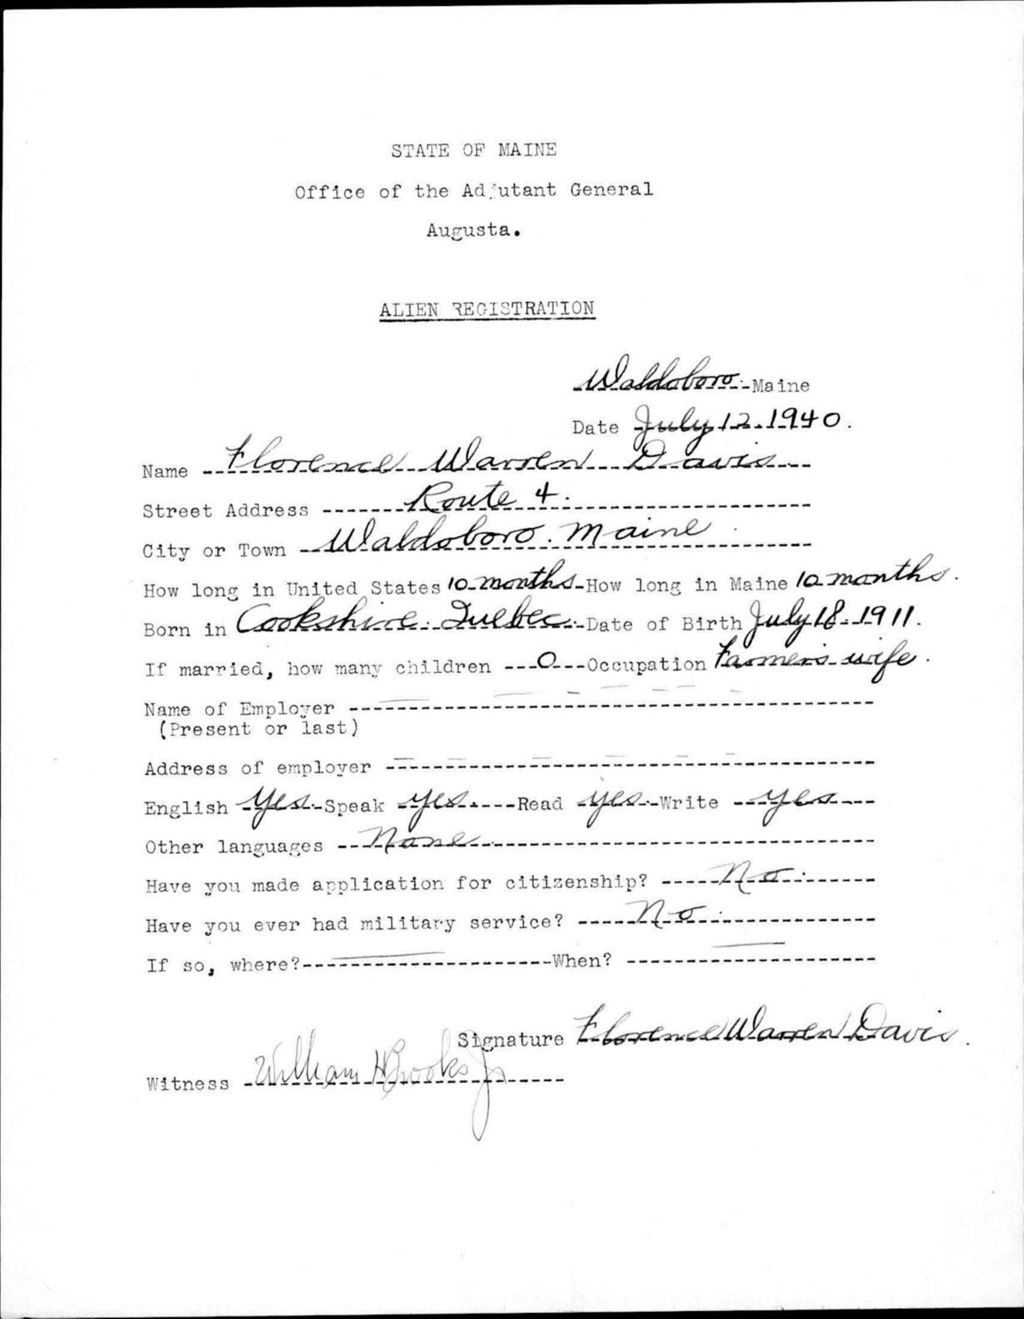 STATE OF MAINE
Office of the Adjutant General
Augusta.
ALIEN REGISTRATION
Waldoboro. Maine
Date July 12. 1940.
Name Florence Warren Davis
Street Address Route 4.
City or Town Waldoboro. Maine.
How long in United States 10 months How long in Maine 10 months.
Born in Cookshire. Quebec. Date of Birth July 18. 1911.
If married, how many children 0 Occupation Farmer's wife.
Name of Employer
(Present or last)
Address of employer
English Yes. Speak yes. Read yes. Write yes
Other languages None.
Have you made application for citizenship? No.
Have you ever had military service? No.
If so, where? When?
Signature Florence Warren Davis.
Witness William H Brooks Jr